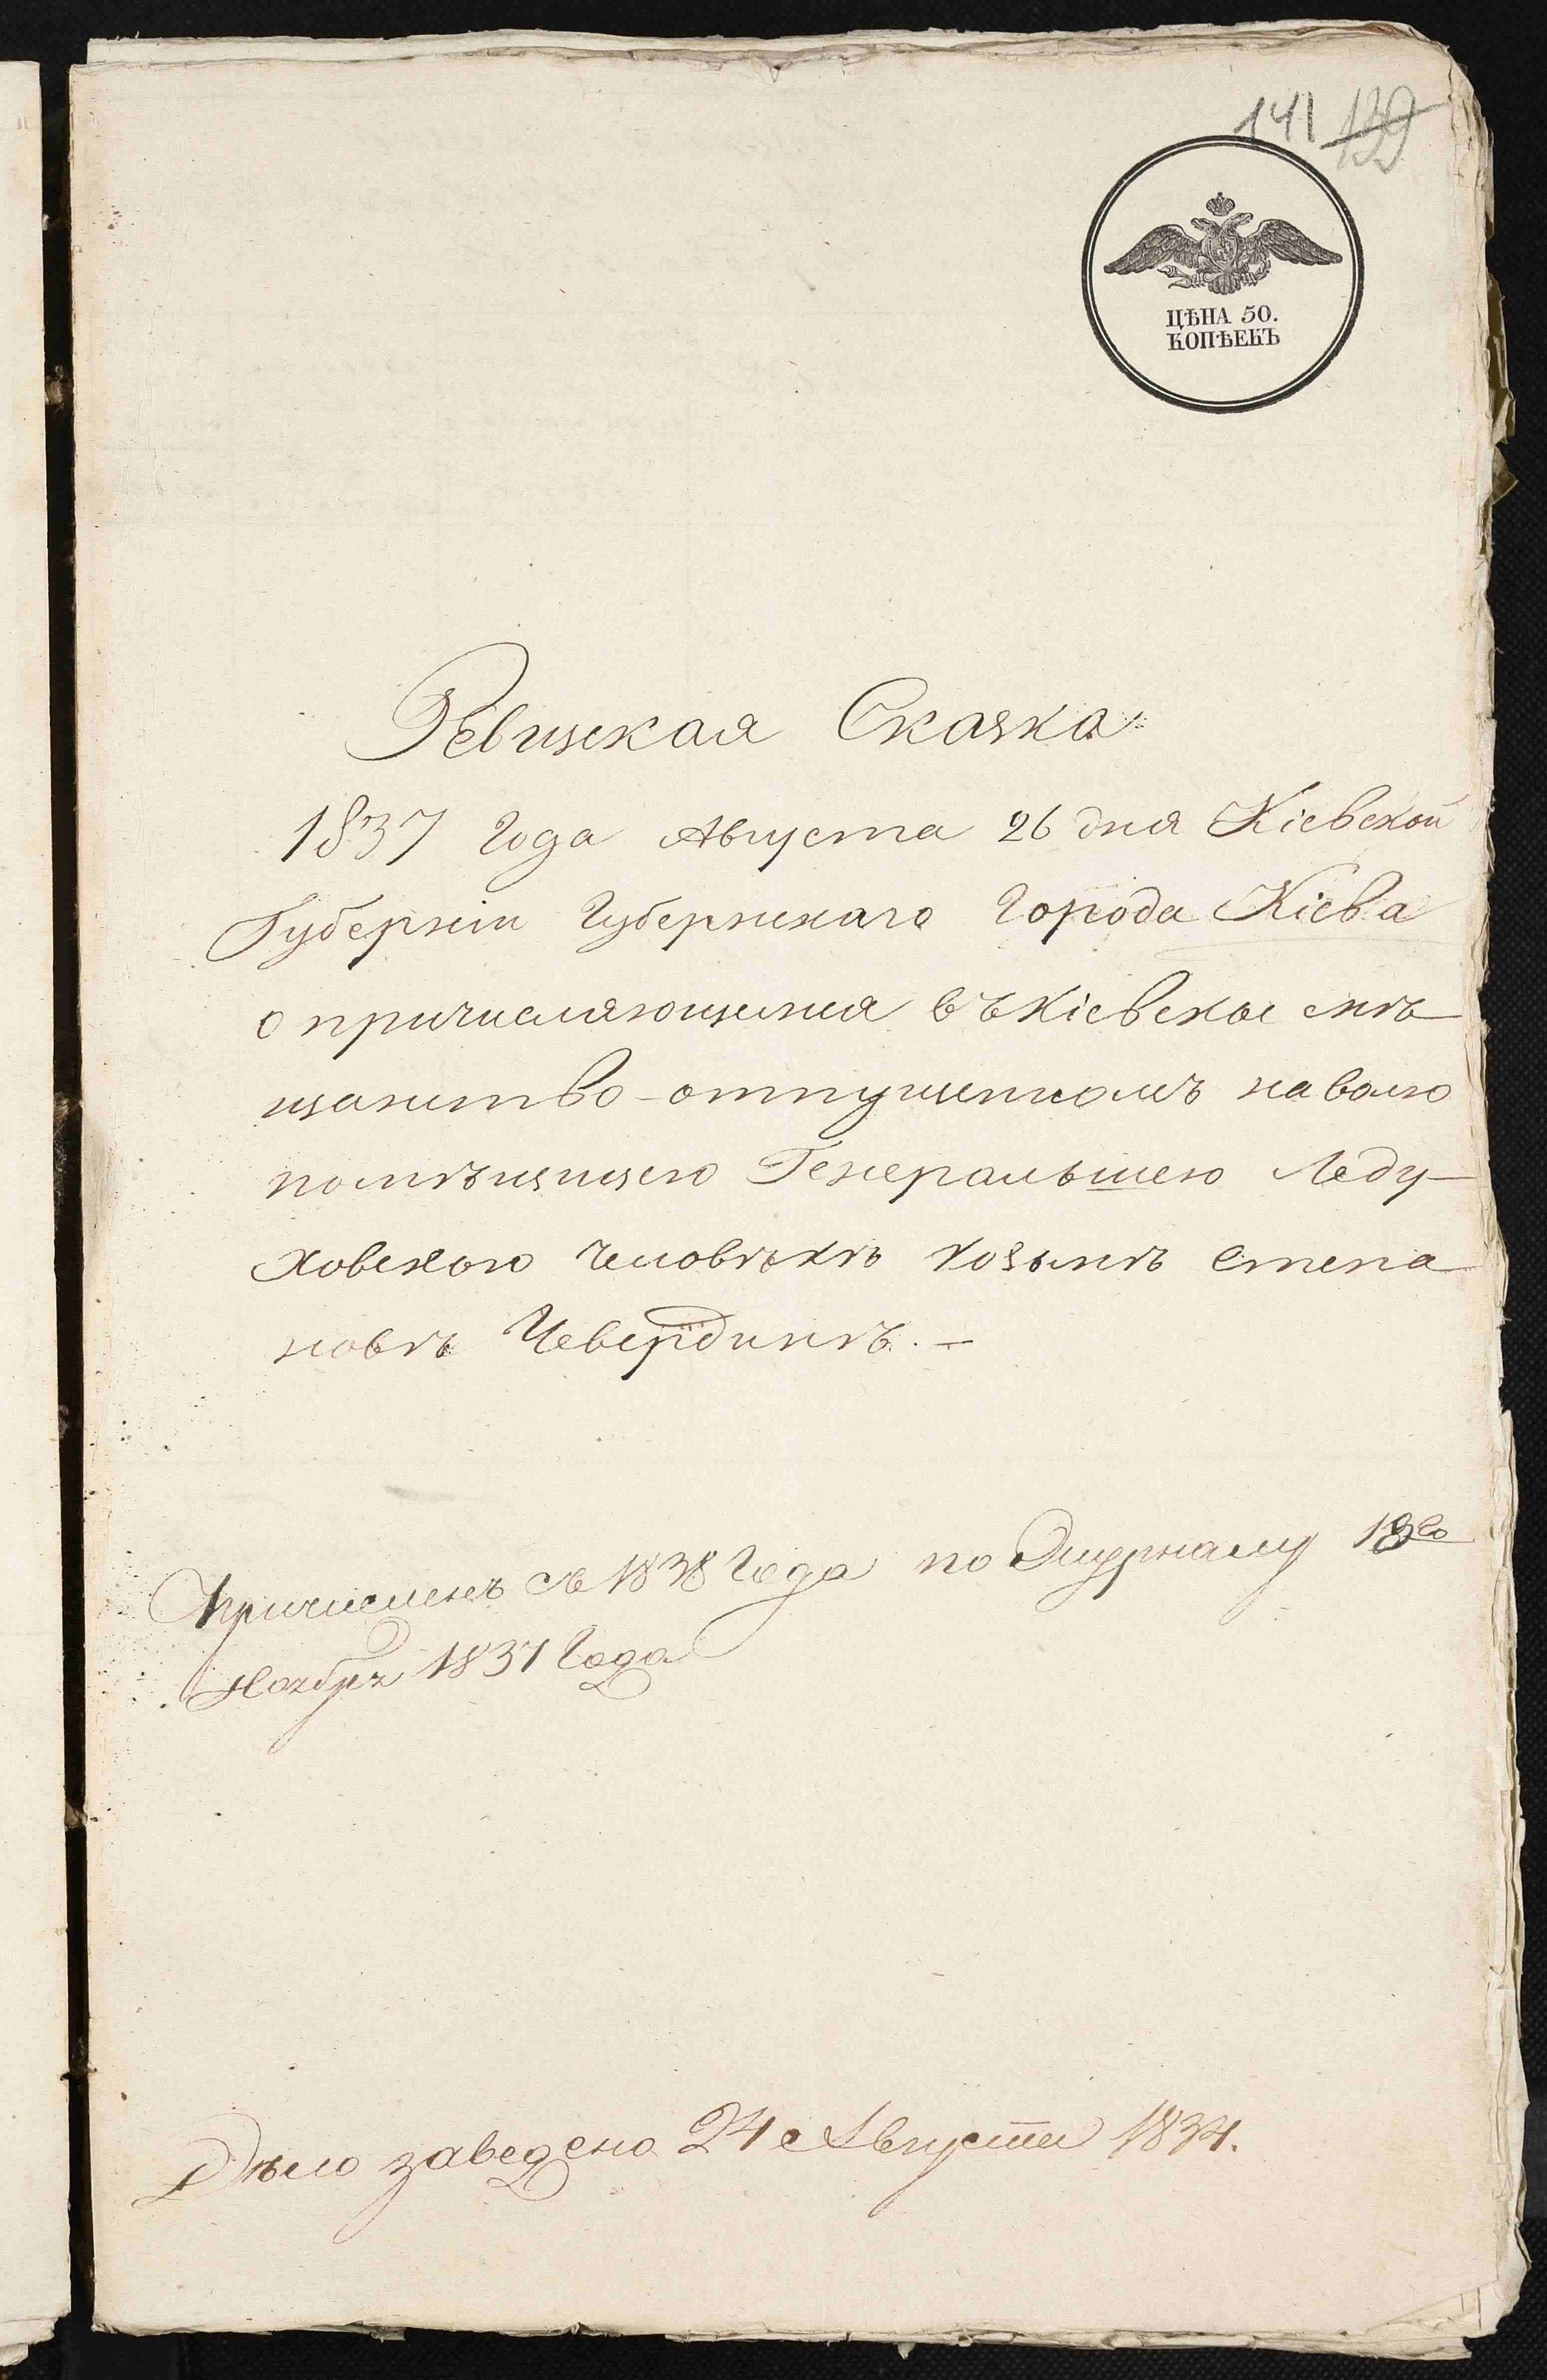 141 139
ЦѢНА 50.
КОПѢЕКЪ
Ревижская Сказка
1837 года Августа 26 дня Кіевской
Губерніи Губернскаго Города Кіева
о причисляющемся въ Кіевское мѣ-
щанство отпущенномъ на волю
помѣщицею Генеральшею Леду-
ховскою человѣкѣ Козьмѣ Степа
новѣ Чевердинѣ. —
Причисленъ съ 1838 года по Журналу 18го
Ноября 1837 Года
Дѣло заведено 24 Августа 1834.